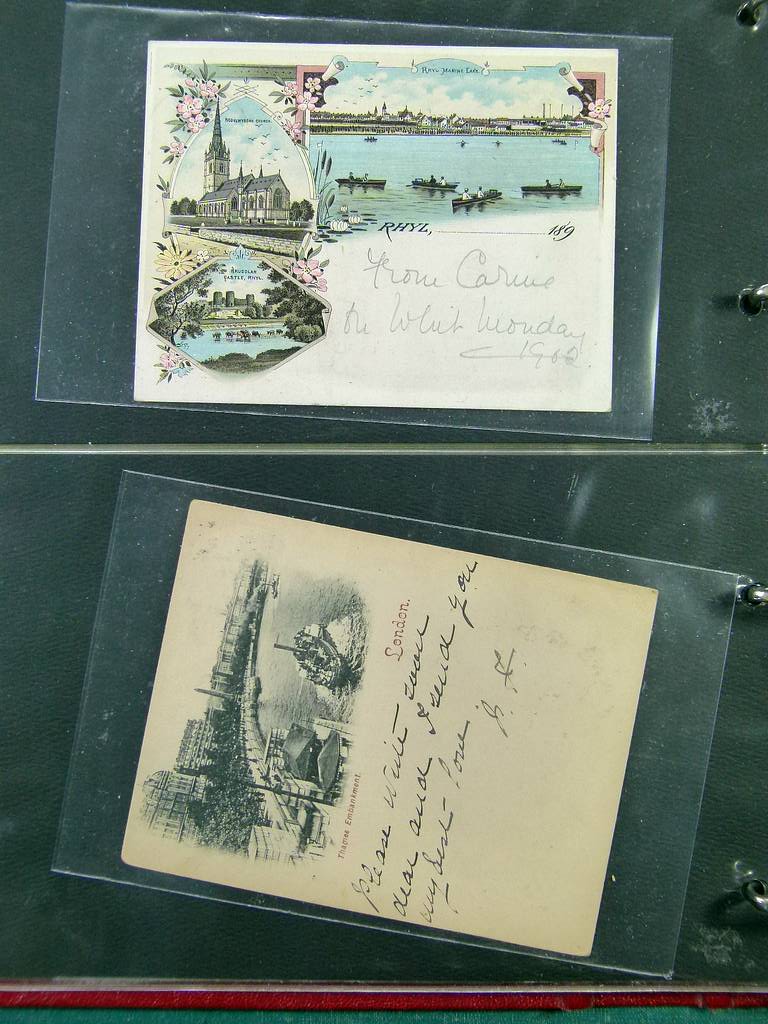 BODELWYDDAN CHURCH.
RHYL MARINE LAKE.
RHUDDLAN
CASTLE, RHYL.
RHYL, 189
From Carrie
on Whit Monday
1902
London.
Thames Embankment.
Please write soon
dear and I send you
my best love